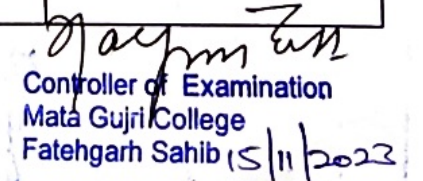 Controller of Examination
Mata Gujri College
Fatehgarh Sahib 15/11/2023